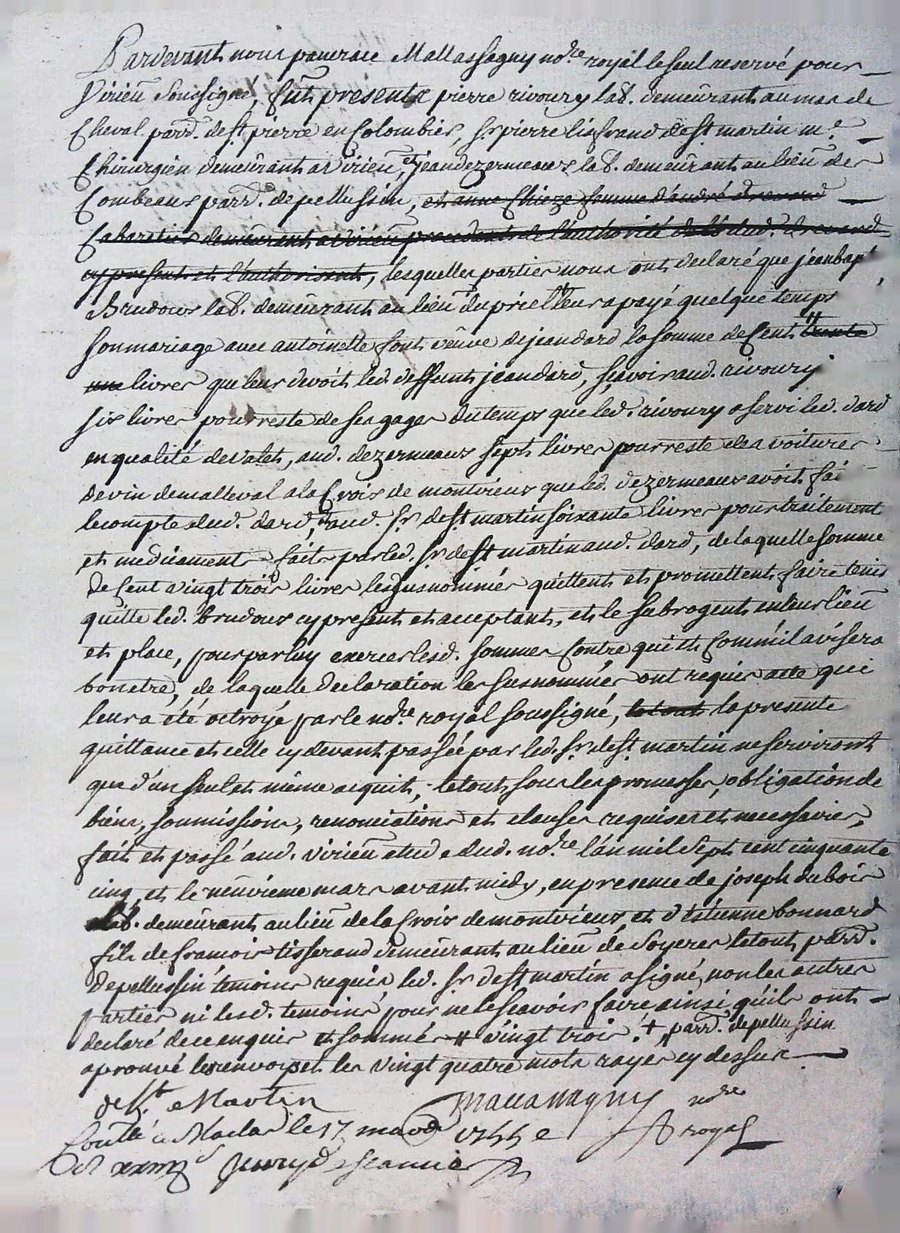 Pardevant nous pancrace Mattassagny no.re royal le seul reservé pour
Virieu soussigné, fut presente pierre rivoury lab. demeurant au mas de
Cheval parr. de st. pierre en Colombier, sr. pierre lisfrand de st martin m.e
Chirurgien demeurant a Virieu, et jean dezermeaux lab. demeurant au lieu de
Combeaux parr. de pelussin, et anne femme d'andré
Cabaretier demeurant a virieu procedante de l'authorité dud.
cy present et l'authorisant, lesquelles parties nous ont declaré que jean bapt.
Brudoux lab. demeurant au lieu du leurs a payé quelque temps
son mariage avec antoinette font veuve de jean dard la somme de Cent trente
une livres que leur devoit led. deffunt jean dard, sçavoir aud. rivoury
six livres pour reste de ses gages du temps que led. rivoury a servi led. dard
en qualité de valet, aud. dezermeaux sept livres pour reste des voitures
de vin de malleval a la Croix de montvieux que led. dezermeaux avoit fai
le compte dud. dard, et aud. sr. de st martin soixante livres pour traitement
et medicament faits par led. sr. de st martin aud. dard, de laquelle somme
de Cent vingt trois livres les susnommés quittent et promettent faire tenir
quitte led. brudoux cy present et acceptant, et le subrogent en leur lieu
et place, pour par luy exercer lesd. sommes Contre qui et Comm'il avisera
bon etre, de laquelle declaration les susnommés ont requis acte qui
leur a été octroyé par le no.re royal soussigné, le tout la presente
quittance et celle cy devant passée par led. sr. de st martin ne serviront
que d'un seul et même acquit, le tout sous les promesses, obligation de
biens, soumissions, renonciations et clauses requises et necessaires,
fait et passé aud. virieu etude dud. no.re l'an mil sept cent cinquante
cinq et le neuvieme mars avant midy, en presence de joseph dubois
lab. demeurant au lieu de la Croix de montvieux et d'etienne bonnard
fils de francois tisserand demeurant au lieu de Soyeres le tout parr.
de pelussin temoins requis led. sr. de st martin a signé, non les autres
parties ni lesd. temoins pour ne le scavoir faire ainsi qu'ils ont
declaré de ce enquis et sommés # vingt trois # + parr. de pelussin
aprouvé les renvoys et les vingt quatre mots rayés cy dessus
de St Martin Mattassagny no.re
Conllé a Maclas le 17 royal